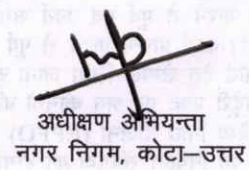 अधीक्षण अभियन्ता
नगर निगम, कोटा–उत्तर